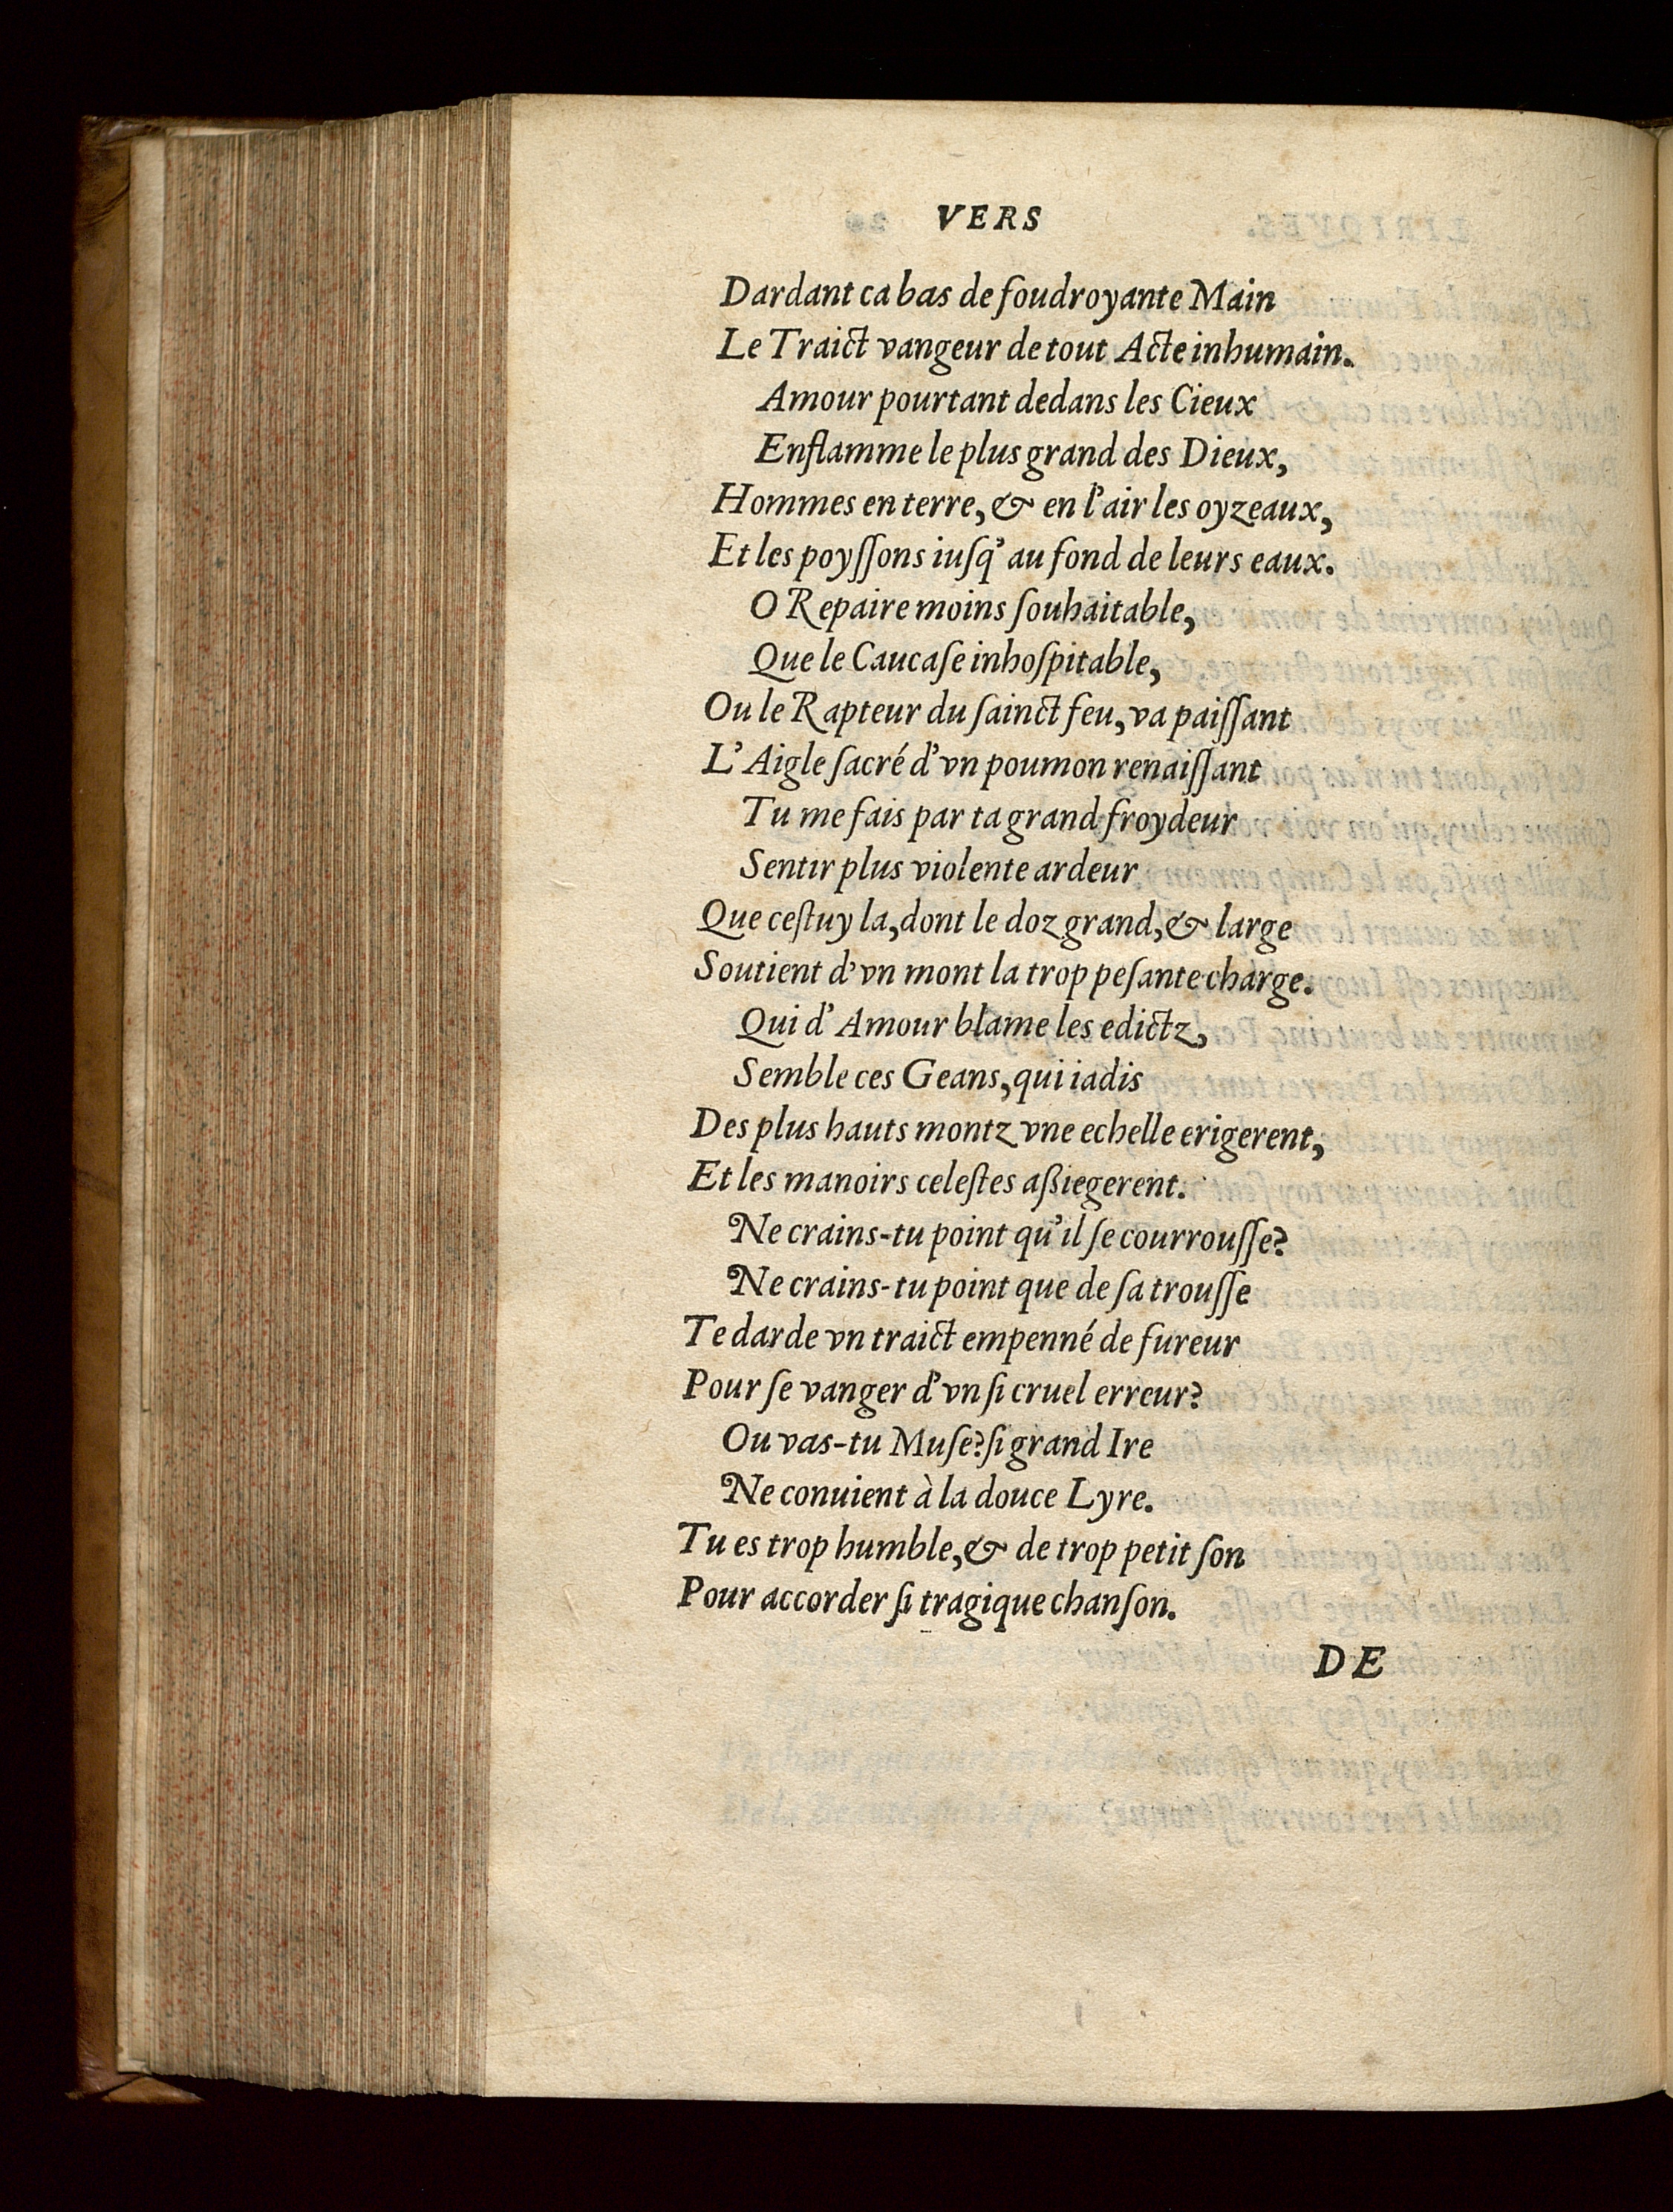 VERS
Dardant ca bas de foudroyante Main
Le Traict vangeur de tout Acte inhumain.
Amour pourtant dedans les Cieux
Enflamme le plus grand des Dieux,
Hommes en terre, & en l'air les oyzeaux,
Et les poyſſons iuſq' au fond de leurs eaux.
O Repaire moins ſouhaitable,
Que le Caucaſe inhoſpitable,
Ou le Rapteur du ſainct feu, va paiſſant
L'Aigle ſacré d'vn poumon renaiſſant
Tu me fais par ta grand froydeur
Sentir plus violente ardeur
Que ceſtuy la, dont le doz grand, & large
Soutient d'vn mont la trop peſante charge.
Qui d'Amour blame les edictz,
Semble ces Geans, qui iadis
Des plus hauts montz vne echelle erigerent,
Et les manoirs celeſtes aßiegerent.
Ne crains-tu point qu'il ſe courrouſſe?
Ne crains-tu point que de ſa trouſſe
Te darde vn traict empenné de fureur
Pour ſe vanger d'vn ſi cruel erreur?
Ou vas-tu Muſe? ſi grand Ire
Ne conuient à la douce Lyre.
Tu es trop humble, & de trop petit ſon
Pour accorder ſi tragique chanſon.
DE